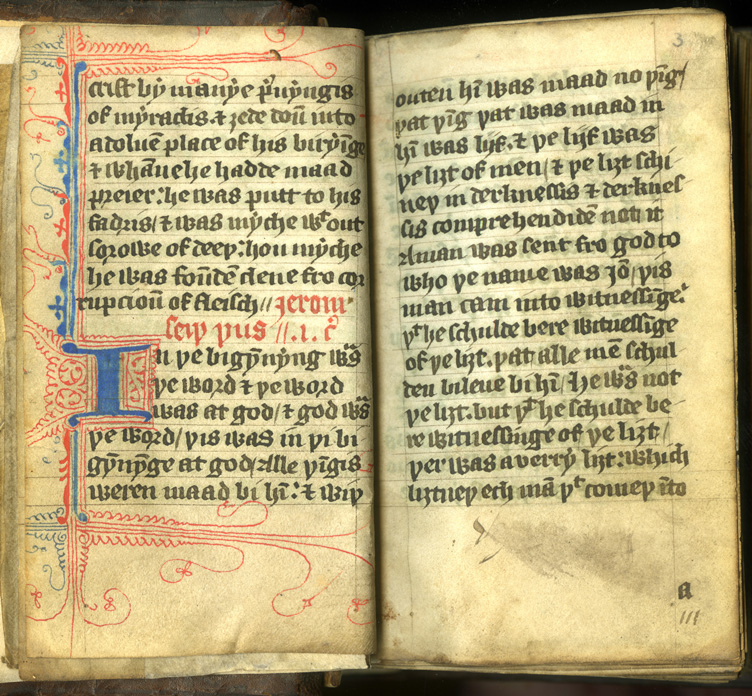 crist bẏ manẏe p̃uẏngis
of mẏraclis ⁊ ȝede doũ into
a doluen place of his biriẏnge
⁊ whãne he hadde maad
preier: he was putt to his
fadris/ ⁊ was mẏche wᵗ out
sorowe of deeþ: hou mẏche
he was foũdẽ clene fro cor
rupcioũ of fleisch// Jerom
seiþ þus //.i. c̃
In þe bigẏ̃nẏng wᵃs
þe word ⁊ þe word
was at god/ ⁊ god wᵃs
þe word/ þis was in þi bi
gẏ̃nẏnge at god/ Alle þĩgis
weren maad bi hĩ: ⁊ wiþ
3
outen hĩ was maad no þĩg/
þat þĩg þat was maad in
hĩ was lijf. ⁊ þe lijf was
þe liȝt of men/ ⁊ þe liȝt schi
neþ in derknessis ⁊ derknes
sis comprehendidẽ not it
A man was sent fro god to
who þe name was Jõ/ þis
man cam into witnessĩge:
þᵗ he schulde bere witnessĩge
of þe liȝt. þat alle mẽ schul
den bileue bi hĩ/ he wᵃs not
þe liȝt. but þᵗ he schulde be
re witnessinge of þe liȝt/
þer was a verrẏ liȝt: which
liȝtneþ ech mã þᵗ comeþ ĩto
a
III